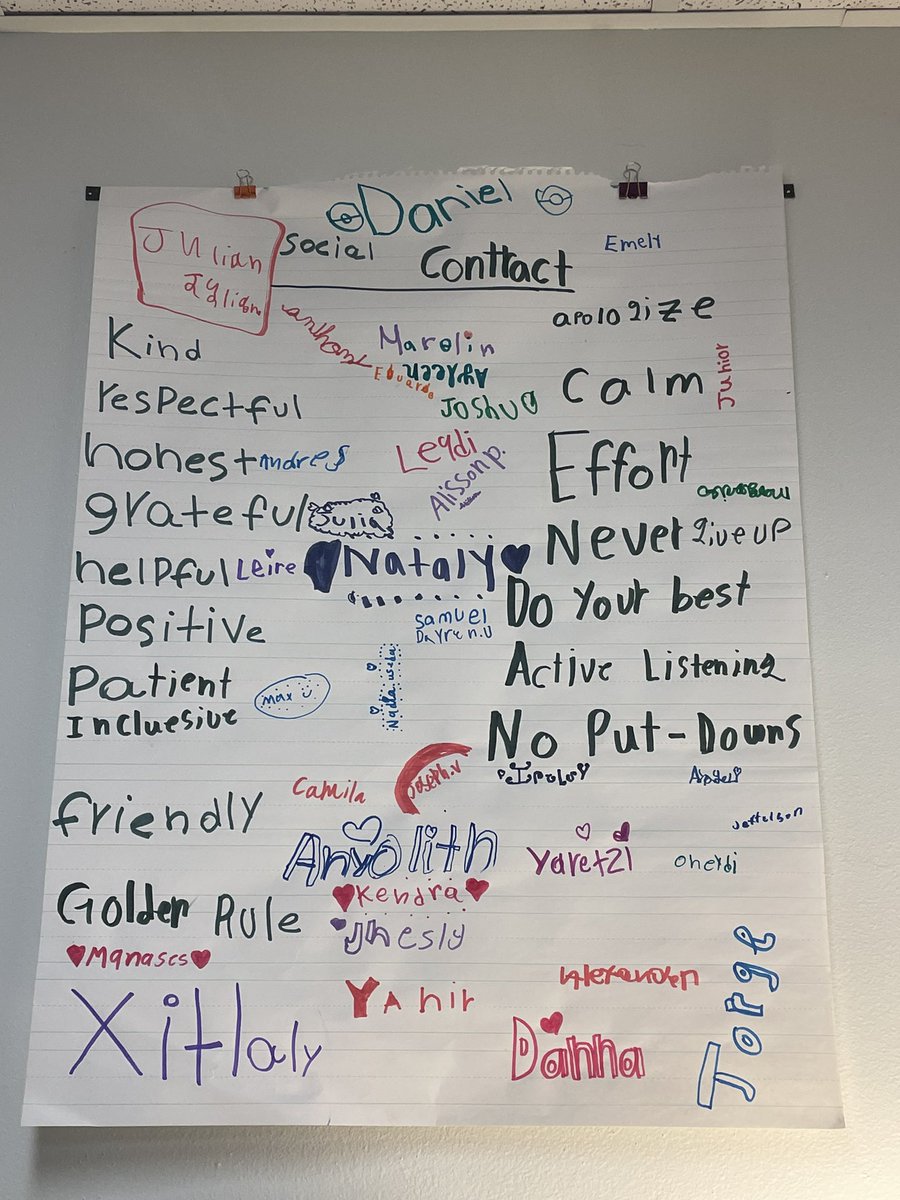 Daniel
Julian
social Contract
Emely
anthony
apologize
Kind
Marolin
Ayleen
Eduardo
Junior
respectful
Joshu
Calm
honest Andres
Leydi
Alisson p.
Effort
grateful Julia
Never give up
helpful Leire
Nataly
Do Your best
Positive
Samuel
Dayren.U
Active Listening
Patient
max
Incluesive
No Put-Downs
Camila
Joseph.v
friendly
Jefferson
Anyolith
Yaretzi
Oneydi
Golden Rule
Kendra
Jhesly
Manases
Jorge
Xitlaly
Yahir
Alexander
Danna